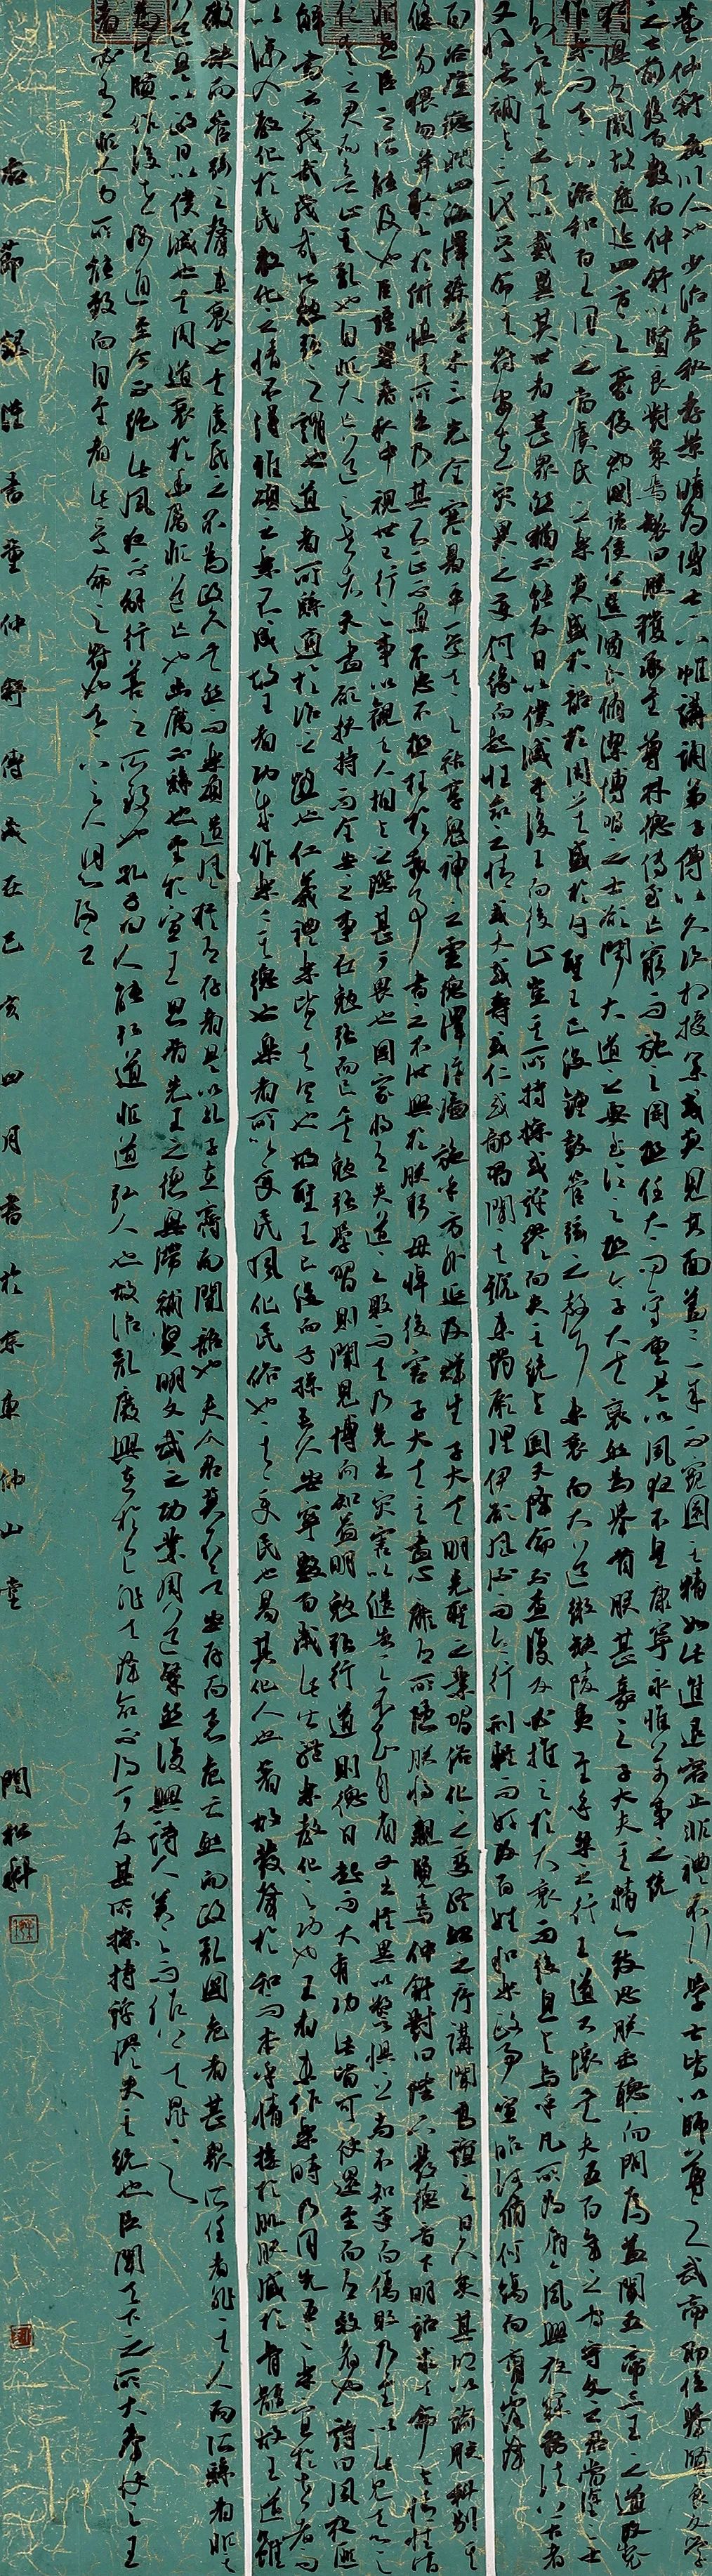 董仲舒廣川人也少治春秋孝景時為博士下帷講誦弟子傳以久次相授業或莫見其面蓋三年不窺園其精如此進退容止非禮不行學士皆以師尊之武帝即位舉賢良文學
之士前後百數而仲舒以賢良對策焉制曰朕獲承至尊休德傳至亡窮而施之罔極任大而守重是以夙夜不皇康寧永惟萬事之統
猶懼有闕故廣延四方之豪俊郡國諸侯公選賢良脩潔博習之士欲聞大道之要至論之極今子大夫裒然為舉首朕甚嘉之子大夫其精心致思朕垂聽而問焉蓋聞五帝三王之道改制
作樂而天下洽和百王同之當虞氏之樂莫盛於韶於周莫盛於勺聖王已沒鐘鼓管弦之聲未衰而大道微缺陵夷至乎桀紂之行王道大壞矣夫五百年之間守文之君當塗之士
則先王之法以戴翼其世者甚眾然猶不能反日以僕滅至後王而後止豈其所持操或誖繆而失其統與固天降命不可復反必推之於大衰而後息與烏乎凡所為屑屑夙興夜寐務法上古者
又將無補與三代受命其符安在災異之變何緣而起性命之情或夭或壽或仁或鄙習聞其號未燭厥理伊欲風流而令行刑輕而奸改百姓和樂政事宣昭何脩何飭而膏露降
百穀登德潤四海澤臻草木三光全寒暑平受天之祜享鬼神之靈德澤洋溢施乎方外延及群生子大夫明先聖之業習俗化之變終始之序講聞高誼之日久矣其明以諭朕科別其
條勿猥勿并取之於術慎其所出乃其不正不直不忠不極枉於執事書之不泄興於朕躬毋悼後害子大夫其盡心靡有所隱朕將親覽焉仲舒對曰陛下發德音下明詔求天命與情性皆
非愚臣之所能及也臣謹案春秋中視世已行之事以觀天人相與之際甚可畏也國家將有失道之敗而天乃先出災害以譴告之不知自省又出怪異以警懼之尚不知變而傷敗乃至以此見天心之
仁愛人君而欲止其亂也自非大亡道之世者天盡欲扶持而全安之事在勉強而已矣勉強學習則聞見博而知益明勉強行道則德日起而大有功此皆可使還至而有效者也詩曰夙夜匪
解書云茂哉茂哉皆勉強之謂也道者所繇適於治之路也仁義禮樂皆其具也故聖王已沒而子孫長久安寧數百歲此皆禮樂教化之功也王者未作樂時乃用先王之樂宜於世者而
以深入教化於民教化之情不得雅頌之樂不成故王者功成作樂樂其德也樂者所以變民風化民俗也其變民也易其化人也著故聲發於和而本於情接於肌膚臧於骨髓故王道雖
微缺而管弦之聲未衰也夫虞氏之不為政久矣然而樂頌遺風猶有存者是以孔子在齊而聞韶也夫人君莫不欲安存而惡危亡然而政亂國危者甚眾所任者非其人而所繇者非其
道是以政日以僕滅也夫周道衰於幽厲非道亡也幽厲不繇也至於宣王思昔先王之德興滯補弊明文武之功業周道粲然復興詩人美之而作上天祐之
為生賢佐後世稱通至今不絕此夙夜不解行善之所致也孔子曰人能弘道非道弘人也故治亂廢興在於己非天降命不得可反其所操持誖謬失其統也臣聞天下之所大奉使之王
者必有非人力所能致而自至者此受命之符也天下之人同心歸之
右節錄漢書董仲舒傳歲在己亥四月書於京東仲山堂 閆松科